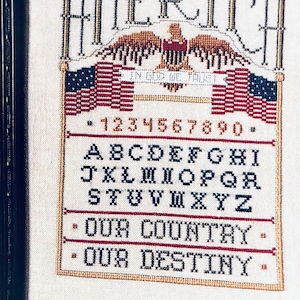 AMERICA
IN GOD WE TRUST
1234567890
ABCDEFGHI
JKLMNOPQR
STUVWXYZ
OUR COUNTRY
OUR DESTINY